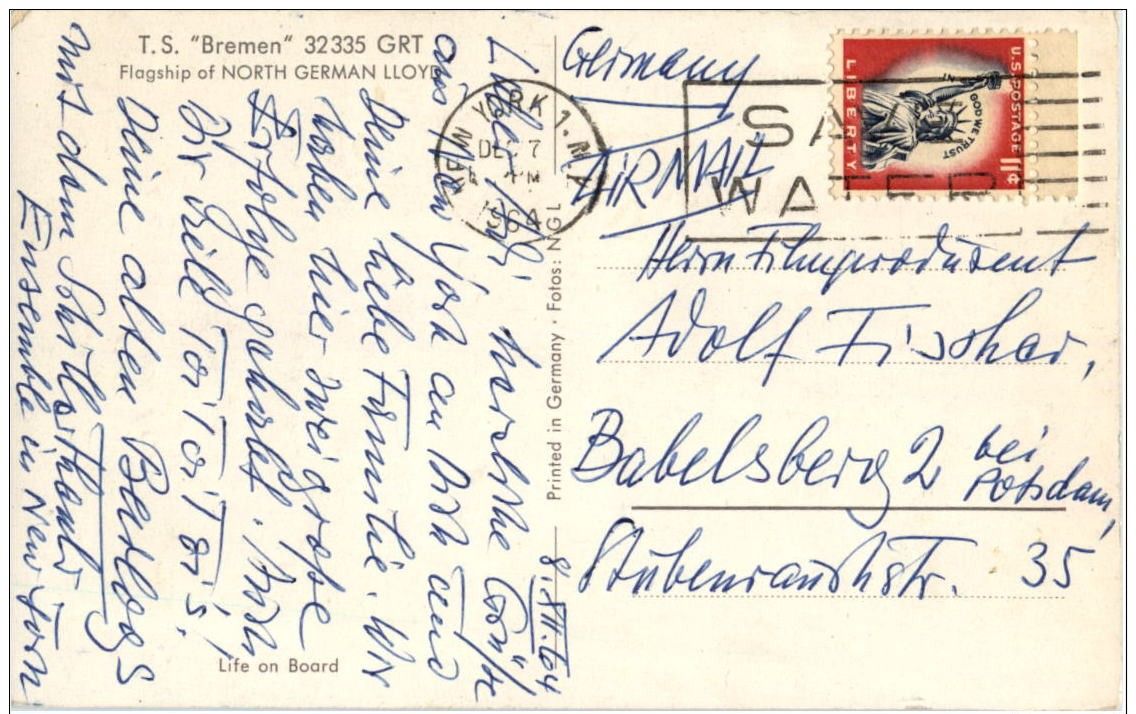 T.S. "Bremen" 32335 GRT
Flagship of NORTH GERMAN LLOYD
8. XII. 64
Liebe herzliche Grüße
aus New York an Dich und
Deine liebe Familie. Wir
haben hier zwei große
Erfolge gehabt. Dir
toi toi toi's,
Deine alten Berlogs
mit dem Schillertheater
Ensemble in New York
Life on Board
Printed in Germany · Fotos: NGL
NEW YORK 1. N.
DEC 7
PM
1964
SA
WATER
U.S. POSTAGE 11¢
LIBERTY
IN GOD WE TRUST
Germany
AIRMAIL
Herrn Filmproduzent
Adolf Fischer,
Babelsberg 2 bei
Potsdam,
Stubenrauchstr. 35